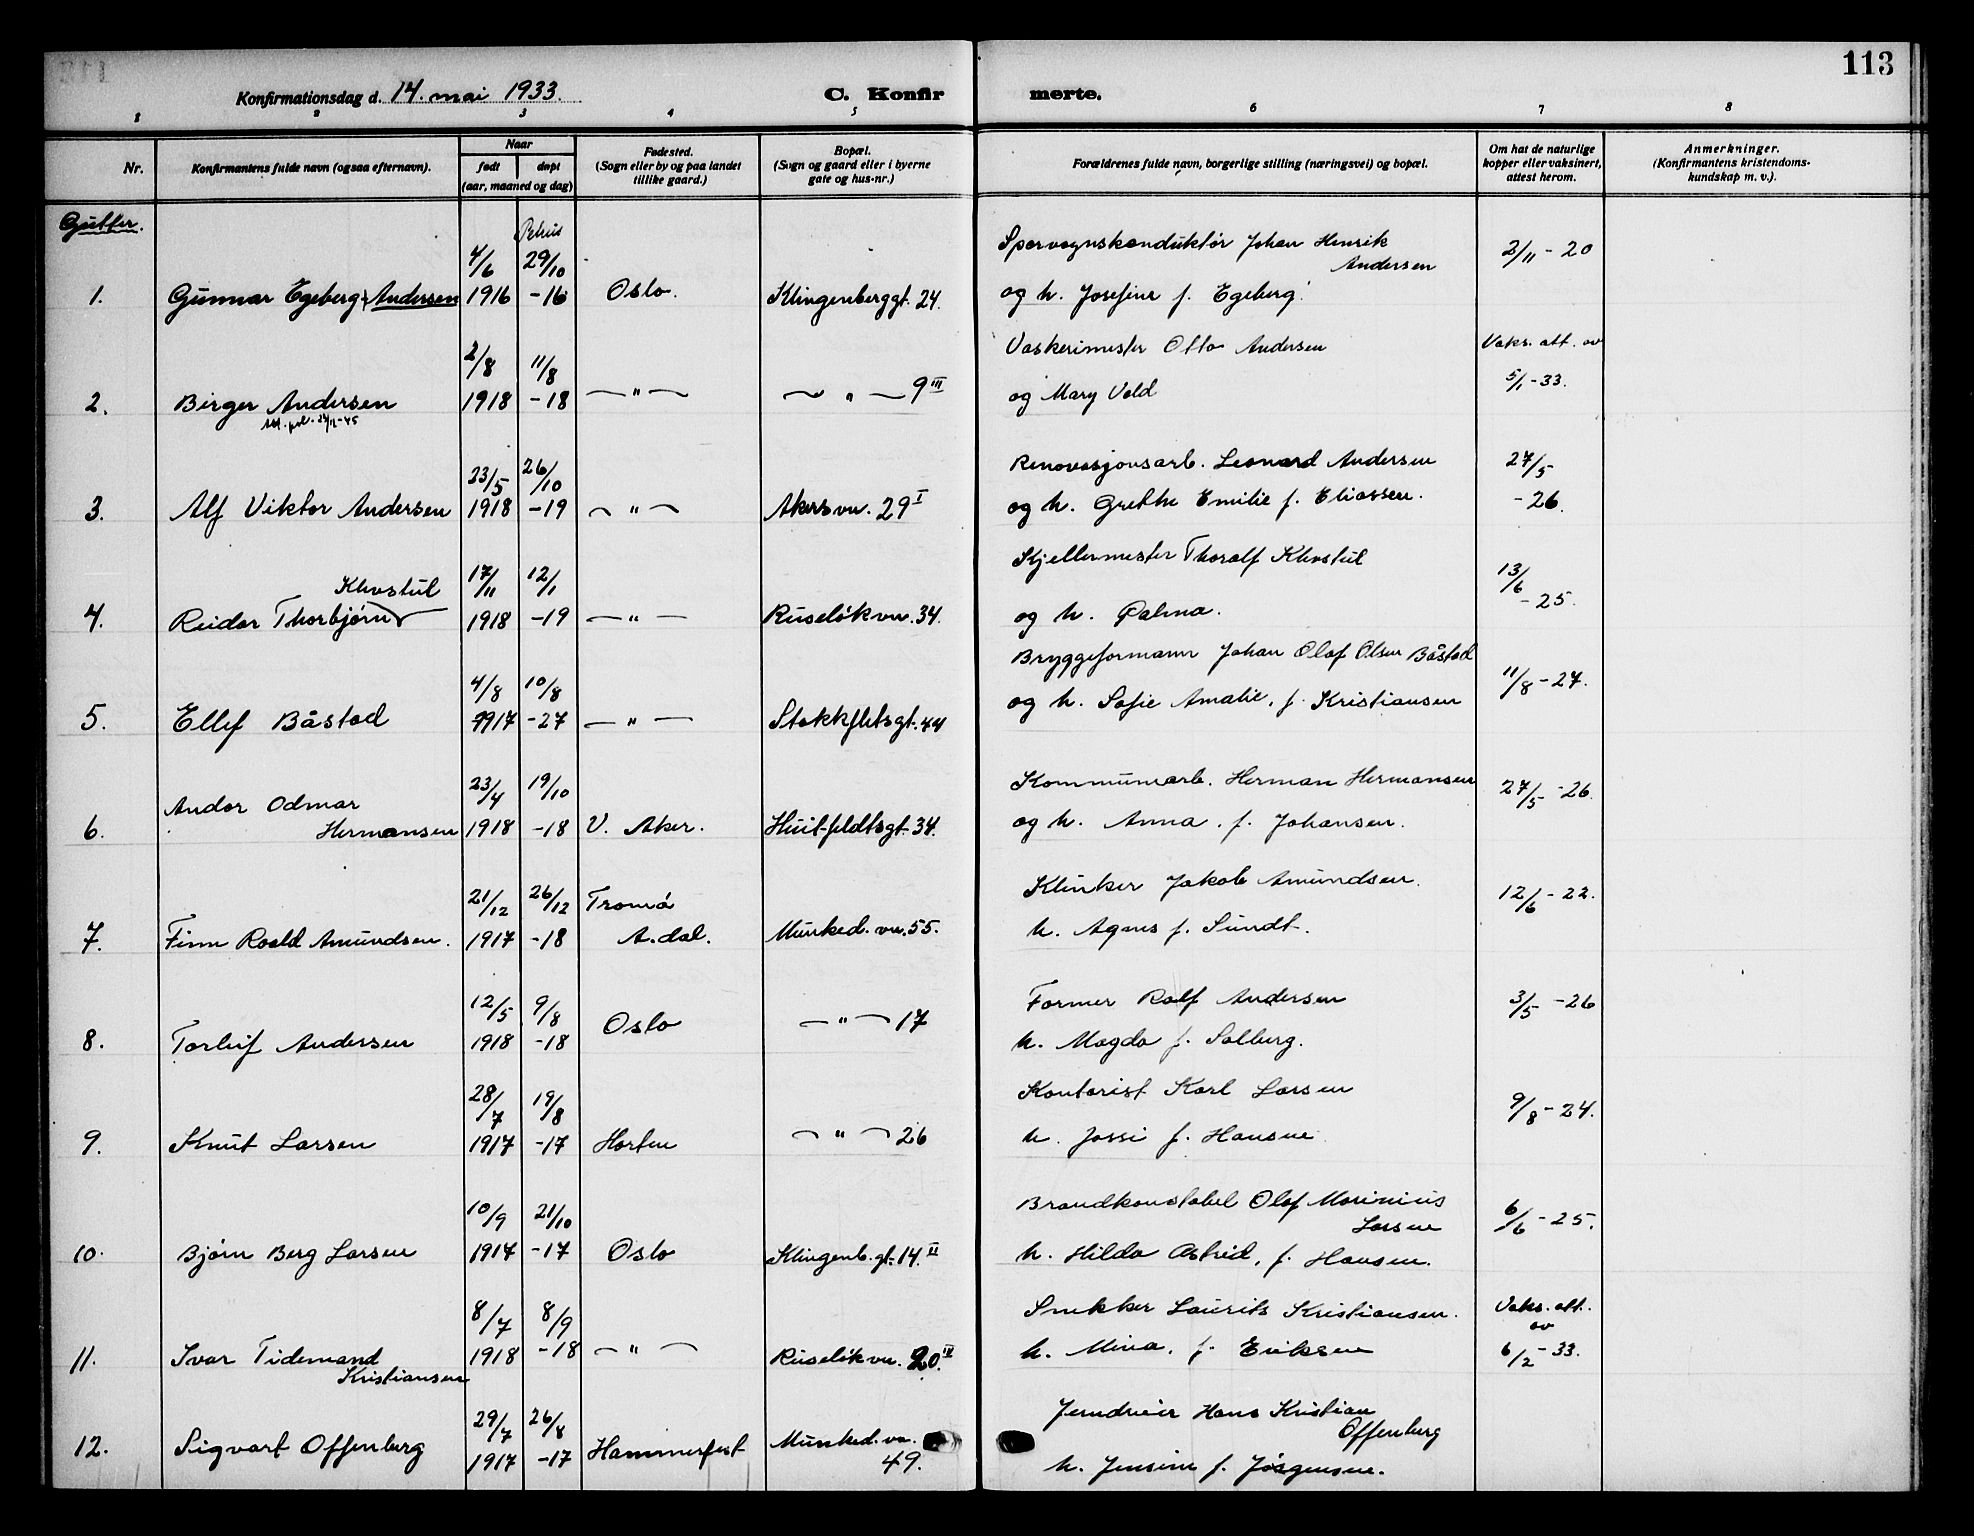 113
Konfirmationsdag d. 14. mai 1933.
C. Konfirmerte.
1 2 3 4 5 6 7 8
Nr.
Konfirmantens fulde navn (ogsaa efternavn).
Naar
født
døpt
(aar, maaned og dag)
Fødested.
(Sogn eller by og paa landet
tillike gaard.)
Bopæl.
(Sogn og gaard eller i byerne
gate og hus-nr.)
Forældrenes fulde navn, borgerlige stilling (næringsvei) og bopæl.
Om hat de naturlige
kopper eller vaksinert,
attest herom.
Anmerkninger.
(Konfirmantens kristendoms-
kundskap m. v.).
Gutter.
1. Gunnar Egeberg Andersen 4/6 1916 29/10 -16 Oslo. Klingenberggt. 24.
Sporvognskonduktør Johan Henrik
Andersen
og h. Josefine f. Egeberg.
2/11 - 20
2. Birger Andersen 2/8 1918 11/8 -18 — " — — " — 9 III
Vaskerimester Otto Andersen
og Mary Vold
Vaks. att. av
5/1 - 33.
3. Alf Viktor Andersen 23/5 1918 26/10 -19 — " — Akersvn. 29 I
Renovasjonsarb. Leonard Andersen
og h. Grethe Emilie f. Eliassen.
27/5
- 26.
4. Reidar Thorbjørn Klevstul 17/11 1918 12/1 -19 — " — Ruseløkvn. 34.
Skjellermester Thoralf Klevstul
og h. Palma.
13/6
- 25.
5. Ellef Båstad 4/8 1917 10/8 -27 — " — Stokkfletsgt. 44
Bryggeformann Johan Olaf Olsen Båstad
og h. Sofie Amalie, f. Kristiansen
11/8 - 27.
6. Andor Odmar
Hermansen 23/4 1918 19/10 -18 V. Aker. Huitfeldtsgt. 34.
Kommunearb. Herman Hermansen
og h. Anna. f. Johansen.
27/5 - 26.
7. Finn Roald Amundsen. 21/12 1917 26/12 -18 Tromö
A.dal. Munked. vn. 55.
Klinker Jakob Amundsen.
h. Agnes f. Sundt.
12/6 - 22.
8. Torleif Andersen 12/5 1918 9/8 -18 Oslo — " — 17
Former Rolf Andersen
h. Magda f. Solberg.
3/5 - 26
9. Knut Larsen 28/7 1917 19/8 -17 Horten — " — 26
Kontorist Karl Larsen
h. Jossi f. Hansen
9/8 - 24.
10. Bjørn Berg Larsen 10/9 1917 21/10 -17 Oslo Klingenb. gt. 14. II
Brandkonstabel Olaf Marinius
Larsen
h. Hilda Astrid, f. Hansen.
6/6 - 25.
11. Ivar Tidemand
Kristiansen 8/7 1918 8/9 -18 — " — Ruseløkvn. 20. IV
Snekker Laurits Kristiansen.
h. Mina. f. Eriksen
Vaks. att.
av
6/2 - 33.
12. Sigvart Offenberg 29/7 1917 26/8 -17 Hammerfest Munked. vn.
49.
Jerndreier Hans Kristian
Offenberg
h. Jensine f. Jörgensen.